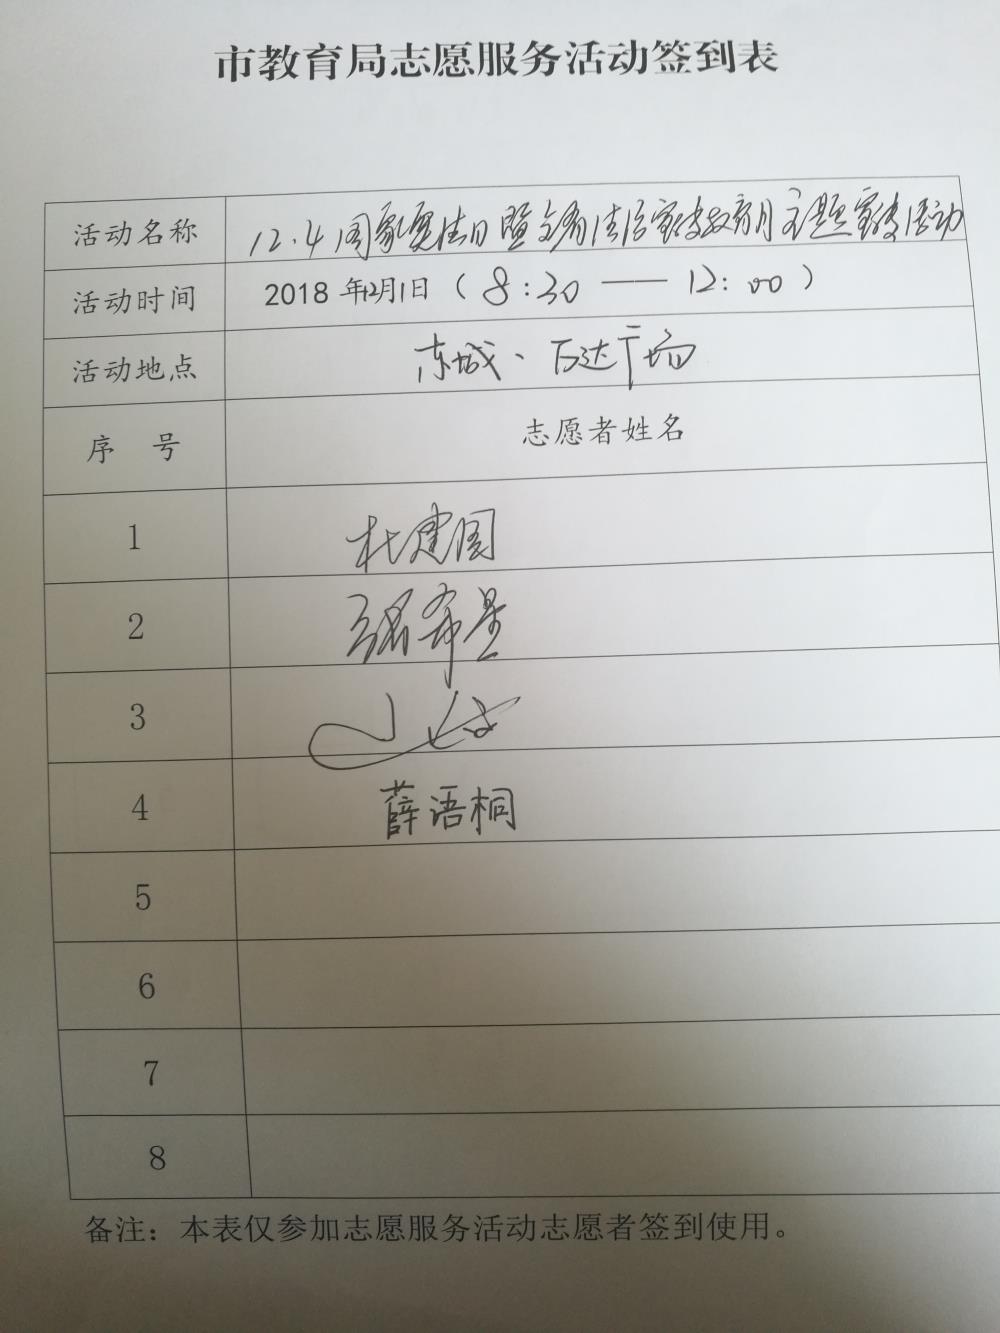 市教育局志愿服务活动签到表
活动名称 12.4国家宪法日暨全省法治宣传教育月主题宣传活动
活动时间 2018年12月1日(8:30——12:00)
活动地点 东城、万达广场
序号 志愿者姓名
1 杜建国
2 张希星
3
4 薛语桐
5
6
7
8
备注：本表仅参加志愿服务活动志愿者签到使用。